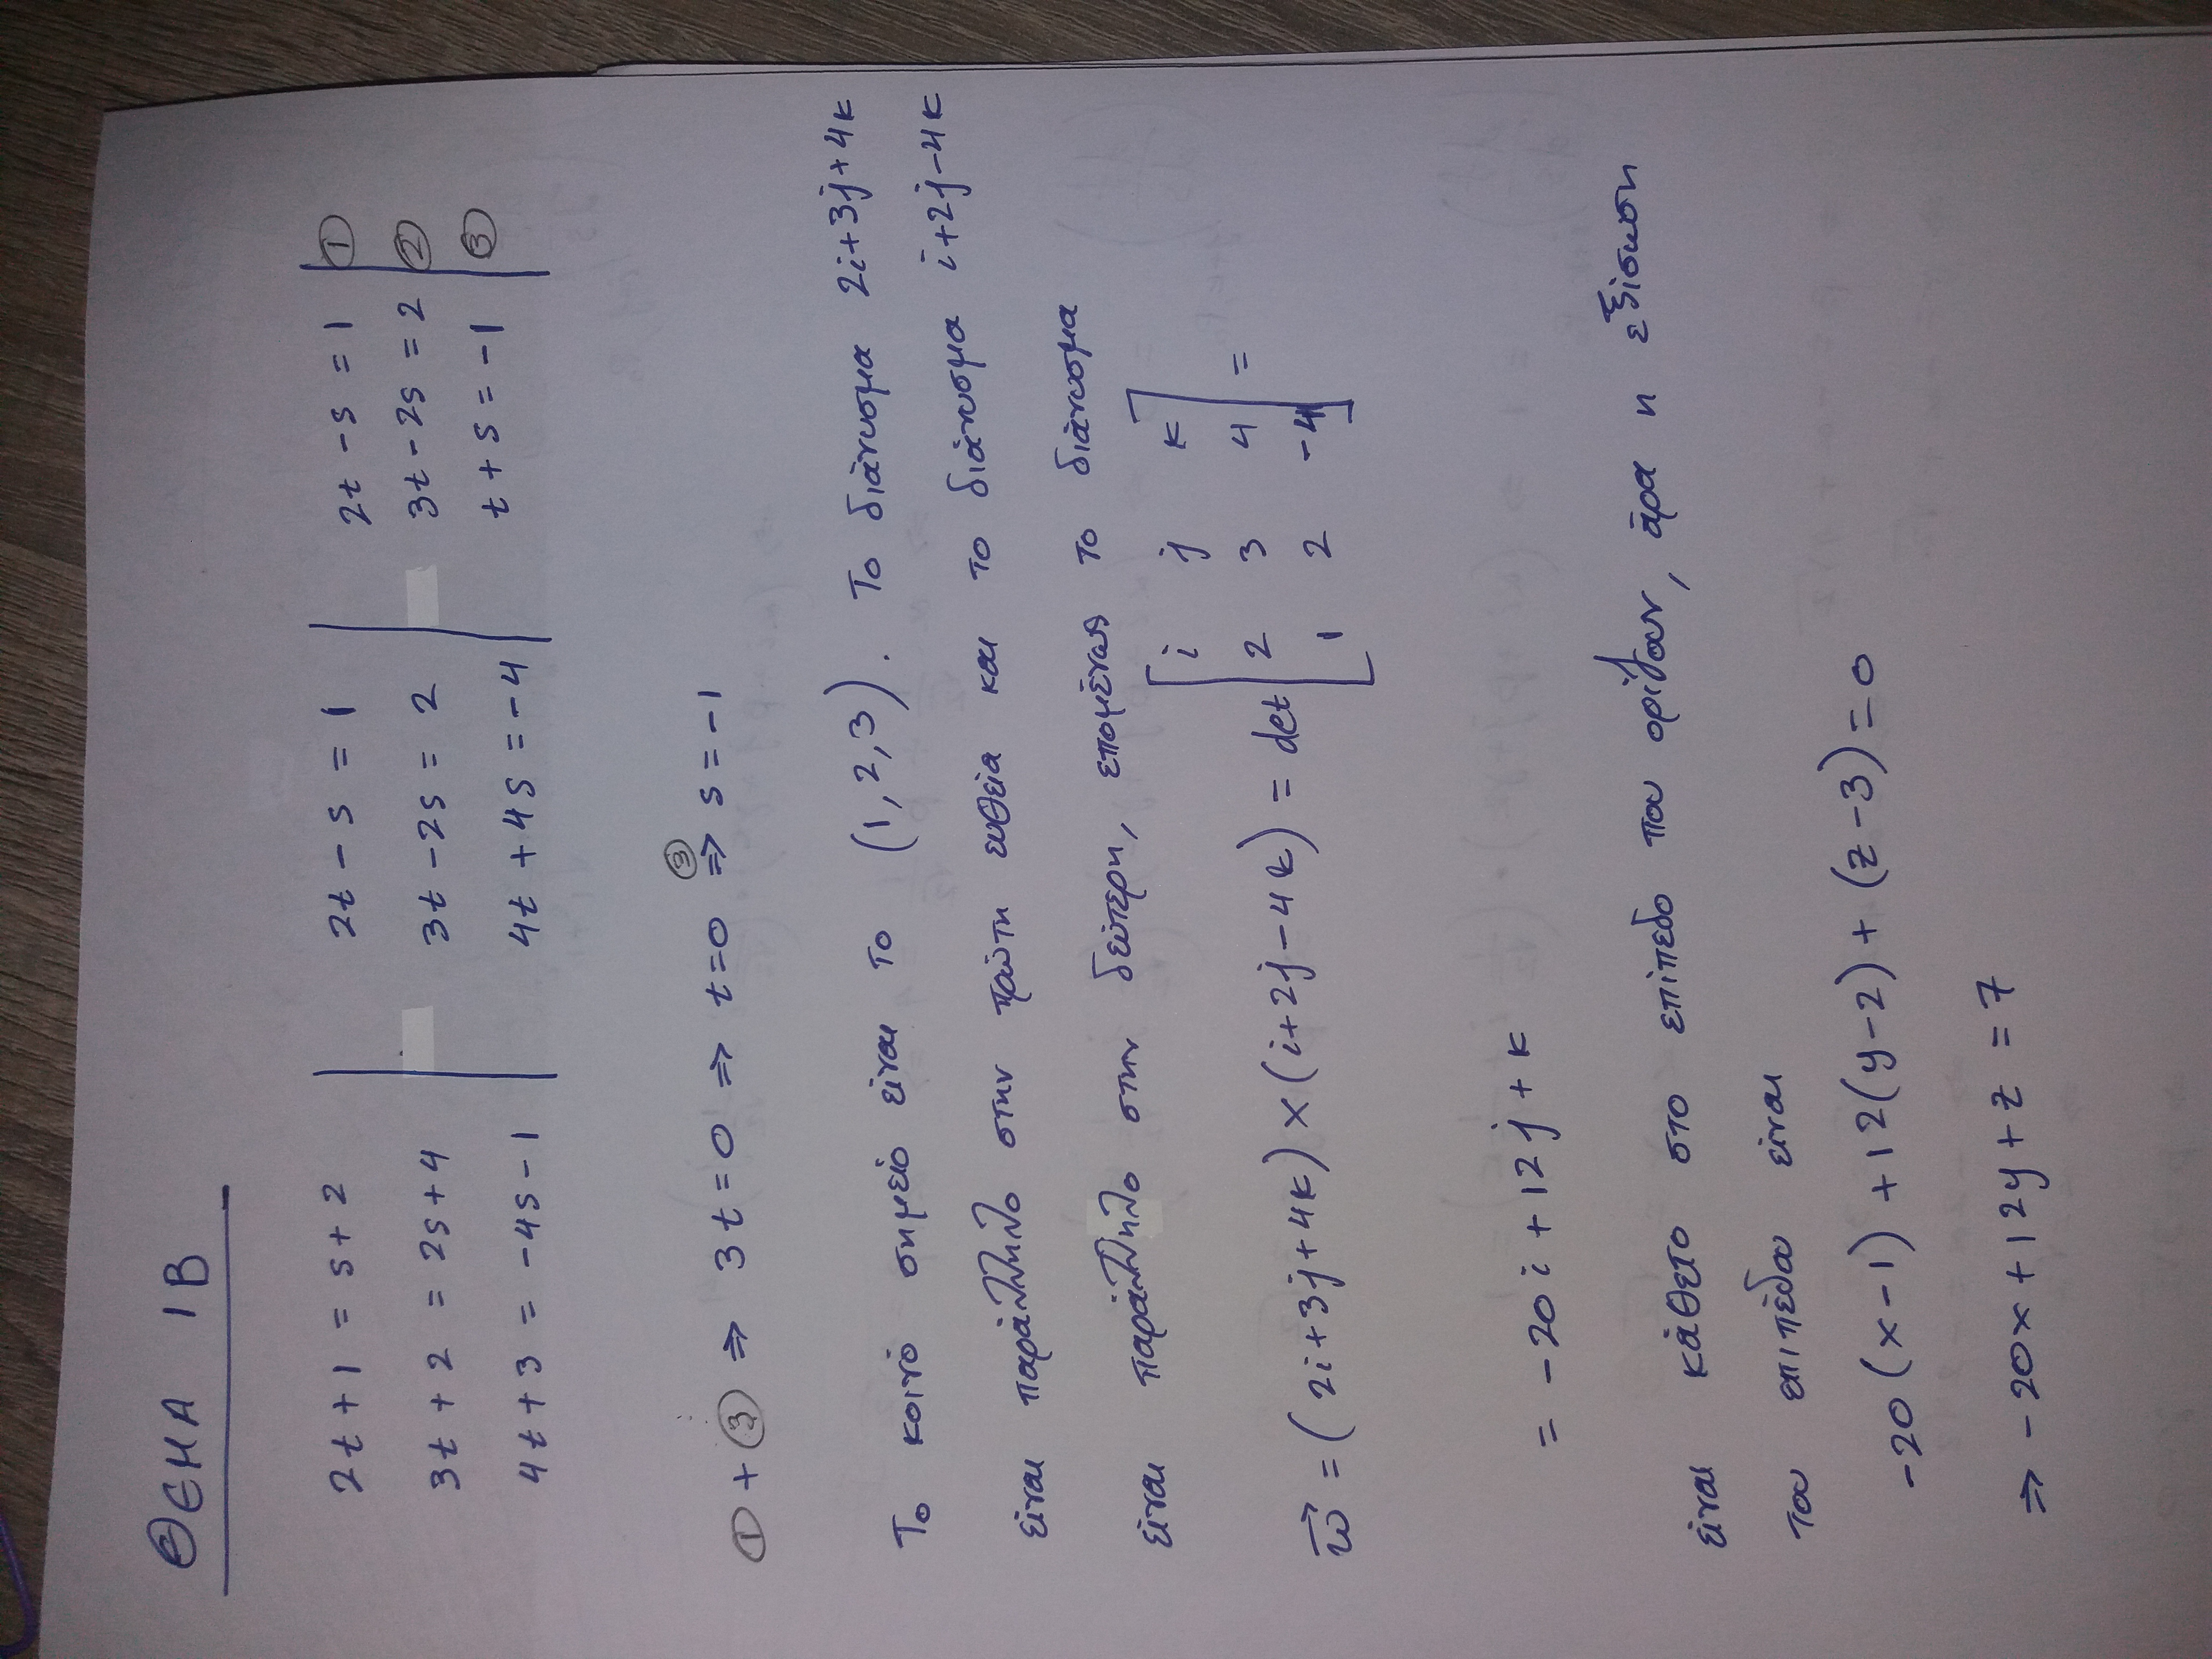 ΘΕΜΑ 1Β
2t+1 = s+2 | 2t-s = 1 | 2t-s = 1 | ①
3t+2 = 2s+4 | 3t-2s = 2 | 3t-2s = 2 | ②
4t+3 = -4s-1 | 4t+4s = -4 | t+s = -1 | ③
①+③ ⇒ 3t=0 ⇒ t=0 ③⇒ s=-1
Το κοινό σημείο είναι το (1,2,3). Το διάνυσμα 2i+3j+4k
είναι παράλληλο στην πρώτη ευθεία και το διάνυσμα i+2j-4k
είναι παράλληλο στην δεύτερη, επομένως το διάνυσμα
w⃗ = (2i+3j+4k)×(i+2j-4k) = det [i j k
2 3 4
1 2 -4] =
= -20i+12j+k
είναι κάθετο στο επίπεδο που ορίζουν, άρα η εξίσωση
του επιπέδου είναι
-20(x-1)+12(y-2)+(z-3)=0
⇒ -20x+12y+z = 7